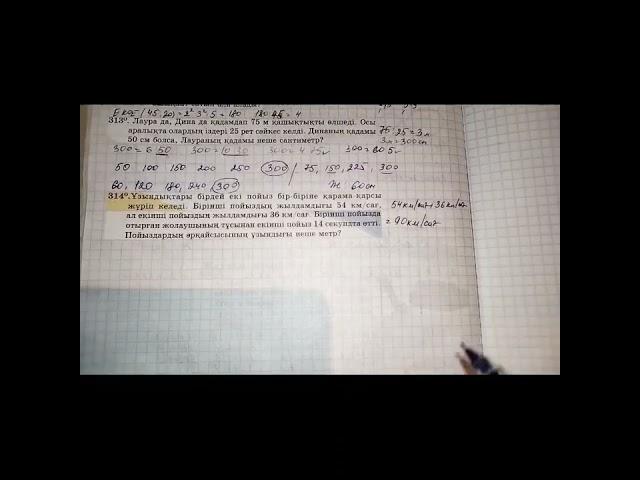 ЕКОЕ (45,20) = 2² 3² 5 = 180 180:45 = 4
313⁰. Лаура да, Дина да қадамдап 75 м қашықтықты өлшеді. Осы
аралықта олардың іздері 25 рет сәйкес келді. Динаның қадамы
50 см болса, Лаураның қадамы неше сантиметр?
75:25=3м
3м=300см
300=6 50
50 100 150 200 250 300 / 75, 150, 225, 300
60, 120 180, 240 300
Ж 60см
314⁰. Ұзындықтары бірдей екі пойыз бір-біріне қарама-қарсы
жүріп келеді. Бірінші пойыздың жылдамдығы 54 км/сағ,
ал екінші пойыздың жылдамдығы 36 км/сағ. Бірінші пойызда
отырған жолаушының тұсынан екінші пойыз 14 секундта өтті.
Пойыздардың әрқайсысының ұзындығы неше метр?
54км/сағ+36км/сағ
=90км/сағ